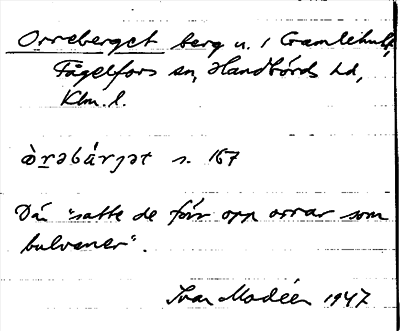 Orreberget berg u. / Gamlehult,
Fågelfors sn, Handbörds hd,
Klm. l.
òrəbárjət s. 167
Dä "satte de förr opp orrar som
bulvaner".
Ivar Modéer 1947